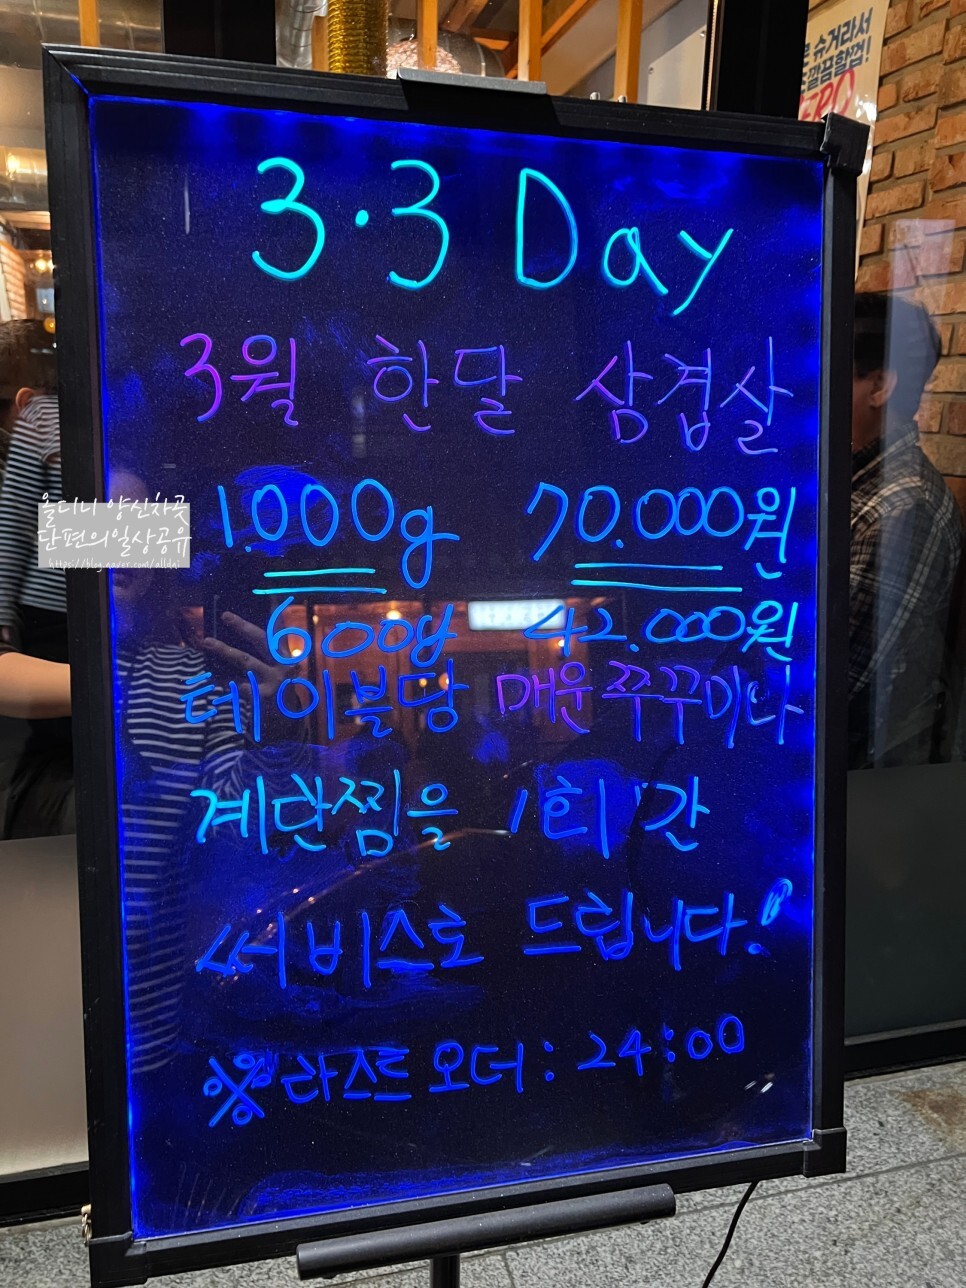 슈거라서
깔끔할껍!
ZERO
3.3 Day
3월 한달 삼겹살
1.000g 70.000원
600g 42.000원
테이블당 매운쭈꾸미나
계란찜을 1회 간
써비스로 드립니다!
※라스트오더 : 24:00
올디니 양신차곡
단편의일상공유
https://blog.naver.com/alldni